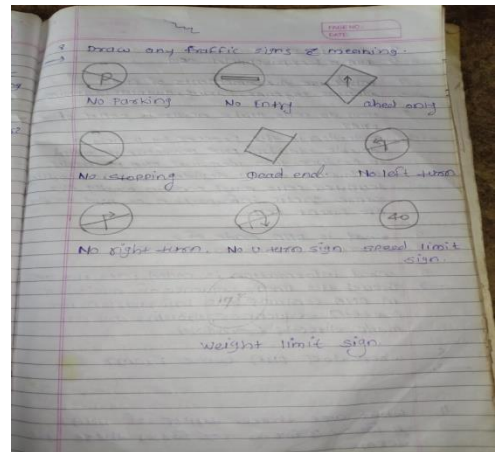 PAGE NO.
DATE:
Draw any traffic signs & meaning.
P
No Parking No Entry ahed only
No stopping Dead end No left turn
40
No right turn. No U turn sign speed limit
sign.
weight limit sign